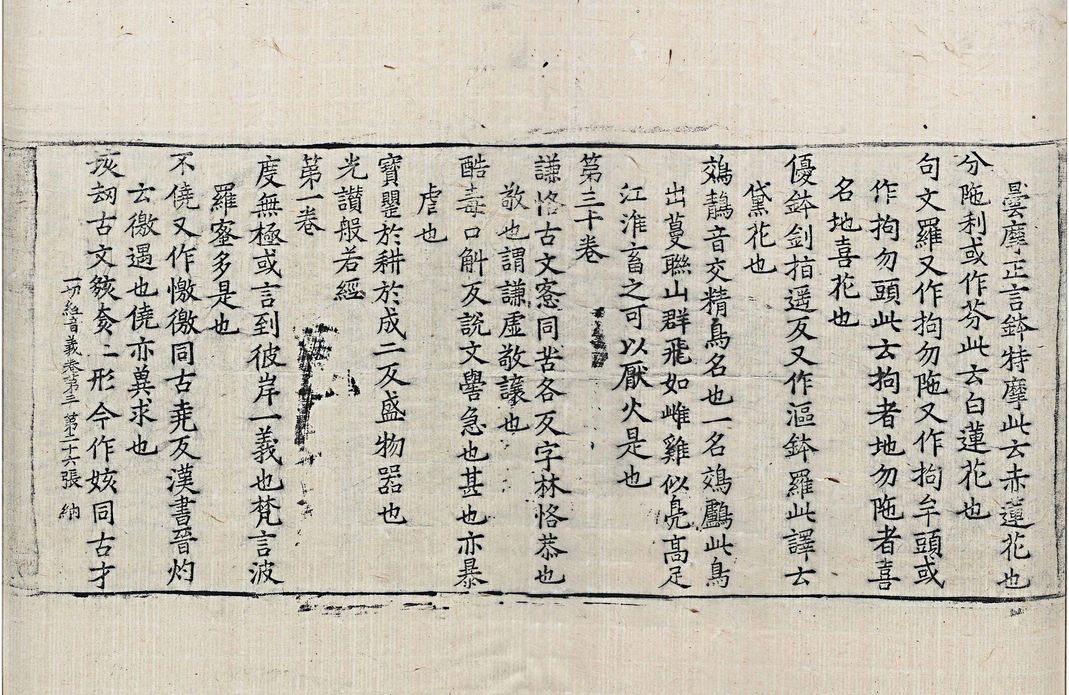 曇摩正言鉢特摩此云赤蓮花也
分陁利或作芬此云白蓮花也
句文羅又作拘勿陁又作拘牟頭或
作拘勿頭此云拘者地勿陁者喜
名地喜花也
優鉢劍指遥反又作漚鉢羅此譯云
黛花也
鵁鶄音交精鳥名也一名鵁鸕此鳥
出蔓聯山群飛如雌雞似鳧高足
江淮畜之可以厭火是也
第三十卷
謙恪古文愙同苦各反字林恪恭也
敬也謂謙虛敬讓也
酷毒口斛反說文嚳急也甚也亦暴
虐也
寶罌於耕於成二反盛物器也
光讃般若經
第一卷
度無極或言到彼岸一義也梵言波
羅蜜多是也
不僥又作憿徼同古堯反漢書晉灼
云徼遇也僥亦兾求也
垓劫古文𡖉二形今作姟同古才
一切經音義卷第三 第二十六張 納